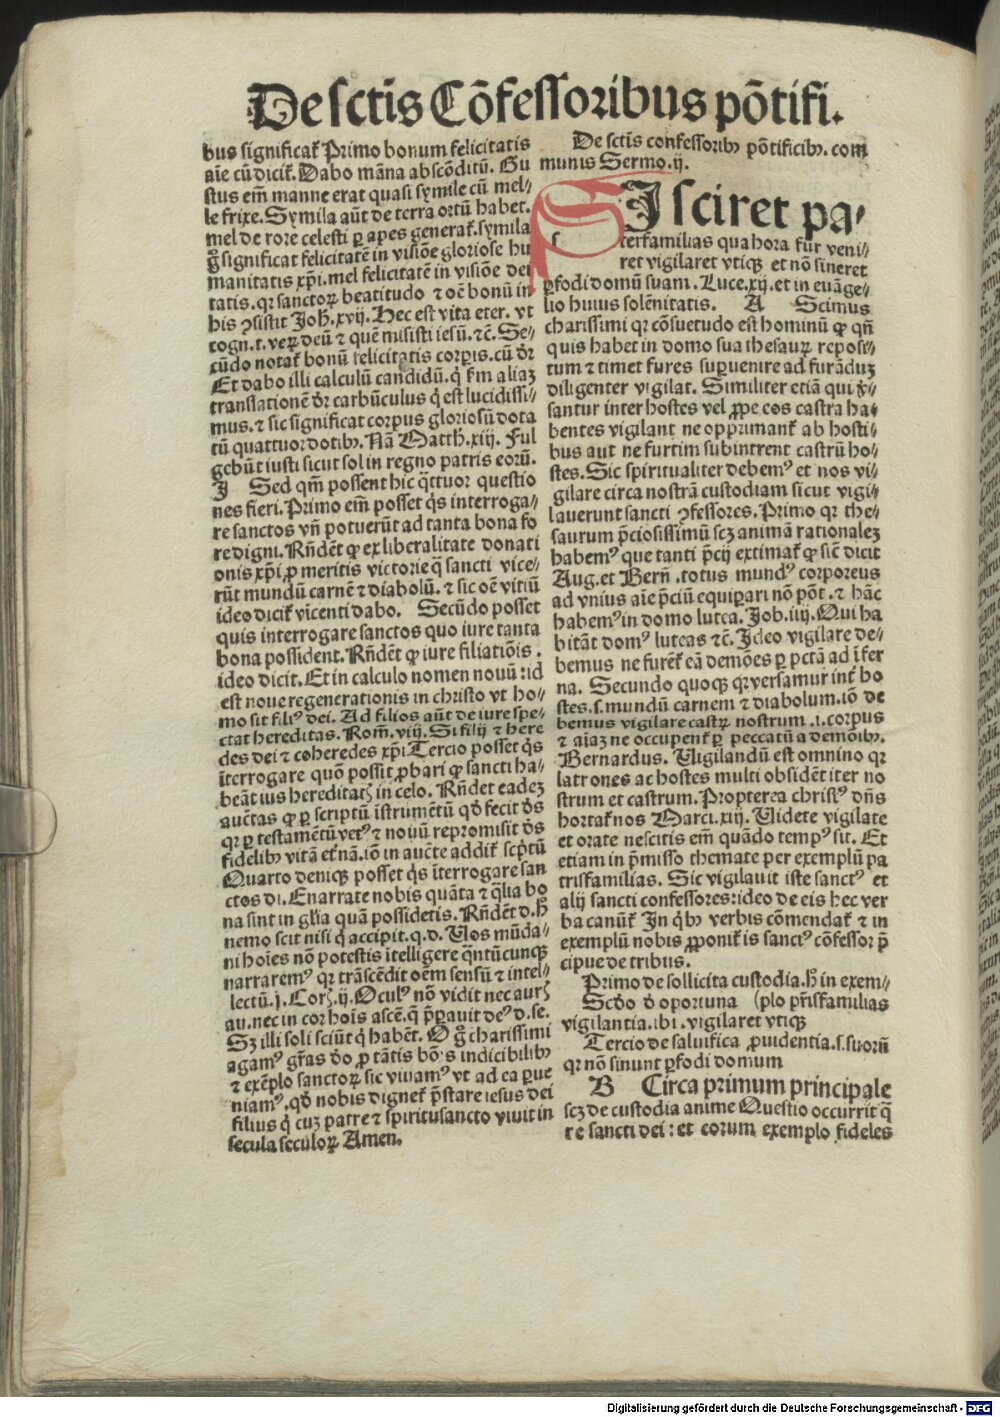 De sctis Cōfessoribus pōtifi.
bus significat᷑ Primo bonum felicitatis
aīe cū dicit᷑. Dabo māna abscōditū. Gu
stus em̄ manne erat quasi symile cū mel⸗
le frixe. Symila aūt de terra ortū habet.
mel de rore celesti ꝑ apes generat᷑. symila
g̊ significat felicitatē in visiōe gloriose hu
manitatis xp̄i. mel felicitatē in visiōe dei
tatis. qꝛ sanctoꝝ beatitudo ⁊ oē bonū in
his ꝯsistit Joh̄. xvij. Hec est vita eter. vt
cogn. t. veꝝ deū ⁊ quē misisti iesū. ⁊c̄. Se⸗
cūdo notat᷑ bonū felicitatis corꝑis. cū dr̄
Et dabo illi calculū candidū. q̇ ẜm aliaꝫ
translationē dr̄ carbūculus q̇ est lucidissi⸗
mus. ⁊ sic significat corpus gloriosū dota
tū quattuor dotibꝫ. Nā Matth̄. xiij. Ful
gebūt iusti sicut sol in regno patris eorū.
J Sed qm̄ possent hic q̈ttuor questio
nes fieri. Primo em̄ posset q̇s interroga⸗
re sanctos vn̄ potuerūt ad tanta bona fo
re digni. Rn̄dēt ꝙ ex liberalitate donati
onis xp̄i ꝓ meritis victorie q̄ sancti vice⸗
rūt mundū carnē ⁊ diabolū. ⁊ sic oē vitiū
ideo dicit᷑ vicenti dabo. Secūdo posset
quis interrogare sanctos quo iure tanta
bona possident. Rn̄dēt ꝙ iure filiatiōis.
ideo dicit. Et in calculo nomen nouū: id
est noue regenerationis in christo vt ho⸗
mo sit filiꝰ dei. Ad filios aūt de iure spe⸗
ctat hereditas. Rom̄. viij. Si filij ⁊ here
des dei ⁊ coheredes xp̄i Tercio posset q̇s
īterrogare quō possit ꝓbari ꝙ sancti ha⸗
beāt ius hereditatꝭ in celo. Rn̄det eadeꝫ
auctas ꝙ ꝑ scriptū īstrumētū qd̄ fecit dn̄s
qꝛ ꝑ testamētū vetꝰ ⁊ nouū repromisit dn̄s
fidelibꝫ vitā et᷑nā. iō in aucte addit᷑ sc̄ptū
Quarto deniqꝫ posset q̇s īterrogare san
ctos di. Enarrate nobis quāta ⁊ q̄lia bo
na sint in glīa quā possidetis. Rn̄det d. h̄
nemo scit nisi q̇ accipit. q. d. Vos mūda⸗
ni hoīes nō potestis ītelligere q̄ntūcunqꝫ
narraremꝰ qꝛ trāscēdit oēm sensū ⁊ intel⸗
lectū. j. Corꝭ. ij. Oculꝰ nō vidit nec aurꝭ
au. nec in cor hoīs ascē. q̄ p̄ꝑauit deꝰ d. se.
Sꝫ illi soli sciūt q̇ habēt. O g̊ charissimi
agamꝰ gr̄as dn̄o ꝓ tātis bōis indicibilibꝫ
⁊ exēplo sanctoꝝ sic viuamꝰ vt ad ea ꝑue
niamꝰ. qd̄ nobis dignet᷑ p̄stare iesus dei
filius q̇ cuꝫ patre ⁊ spiritusancto viuit in
secula seculoꝝ Amen.
De sctis confessoribꝫ pōtificibꝫ. com
munis Sermo. ij.
SI sciret pa⸗
terfamilias qua hora fur veni⸗
ret vigilaret vtiqꝫ et nō sineret
ꝑfodi domū suam. Luce. xij. et in euāge⸗
lio huius solēnitatis. A Scimus
charissimi qꝛ cōsuetudo est hominū ꝙ qn̄
quis habet in domo sua thesauꝝ reposi⸗
tum ⁊ timet fures suꝑuenire ad furāduꝫ
diligenter vigilat. Similiter etiā qui v̓⸗
santur inter hostes vel ꝓpe eos castra ha⸗
bentes vigilant ne opprimant᷑ ab hosti⸗
bus aut ne furtim subintrent castrū ho⸗
stes. Sic spiritualiter debemꝰ et nos vi⸗
gilare circa nostrā custodiam sicut vigi⸗
lauerunt sancti ꝯfessores. Primo qꝛ the⸗
saurum p̄ciosissimū scꝫ animā rationaleꝫ
habemꝰ que tanti p̄cij extimat᷑ ꝙ sic̄ dicit
Aug. et Bern̄. totus mundꝰ corporeus
ad vnius aīe p̄ciū equiꝑari nō pōt. ⁊ hāc
habemꝰ in domo lutea. Job. iiij. Qui ha
bitāt domꝰ luteas ⁊c̄. Ideo vigilare de⸗
bemus ne furet᷑ eā demōes ꝑ pctā ad īfer
na. Secundo quoqꝫ qꝛ versamur int᷑ ho
stes. s. mundū carnem ⁊ diabolum. iō de
bemus vigilare castꝝ nostrum. i. corpus
⁊ aīaꝫ ne occupent᷑ ꝑ peccatū a demōibꝫ.
Bernardus. Uigilandū est omnino qꝛ
latrones ac hostes multi obsidēt iter no
strum et castrum. Propterea christꝰ dn̄s
hortat᷑ nos Marci. xiij. Uidete vigilate
et orate nescitis em̄ quādo tempꝰ sit. Et
etiam in p̄misso themate per exemplū pa
trisfamilias. Sic vigilauit iste sanctꝰ et
alij sancti confessores: ideo de eis hec ver
ba canūt᷑ In q̇bꝫ verbis cōmendat᷑ ⁊ in
exemplū nobis ꝓponit᷑ is sanctꝰ cōfessor p̄
cipue de tribus.
Primo de sollicita custodia. h̄ in exem⸗
Scdo d̓ oportuna (plo pr̄isfamilias
vigilantia. ibi. vigilaret vtiqꝫ
Tercio de saluifica ꝓuidentia. s. suoꝝ
qꝛ nō sinunt ꝑfodi domum
B Circa primum principale
scꝫ de custodia anime Questio occurrit q̄
re sancti dei: et eorum exemplo fideles
Digitalisierung gefördert durch die Deutsche Forschungsgemeinschaft - DFG